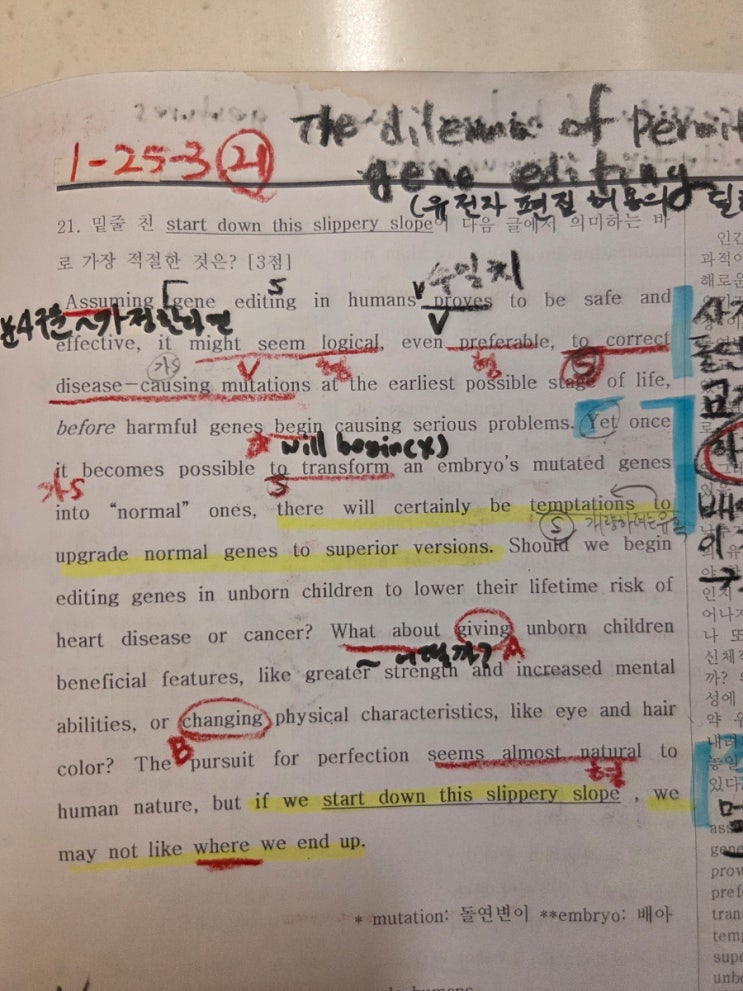 The dilemma of Permit
gene editing
1-25-3 21
(유전자 편집 허용의 딜
21. 밑줄 친 start down this slippery slope이 다음 글에서 의미하는 바
로 가장 적절한 것은? [3점]
수일치
Assuming gene editing in humans proves to be safe and
S
V
~가정한다면
effective, it might seem logical, even preferable, to correct
가S
V
형
형
S
disease-causing mutations at the earliest possible stage of life,
before harmful genes begin causing serious problems. Yet once
will begin(x)
it becomes possible to transform an embryo's mutated genes
가S
S
into “normal” ones, there will certainly be temptations to
S
upgrade normal genes to superior versions. Should we begin
editing genes in unborn children to lower their lifetime risk of
heart disease or cancer? What about giving unborn children
~ 어떨까?
A
beneficial features, like greater strength and increased mental
abilities, or changing physical characteristics, like eye and hair
B
color? The pursuit for perfection seems almost natural to
형
human nature, but if we start down this slippery slope , we
may not like where we end up.
* mutation: 돌연변이 **embryo: 배아
인간
과적이
해로운
어나지
나 또
신체적
까? 
성에
약 우
내려
있다
gene
prov
pref
tran
tem
supe
unbo